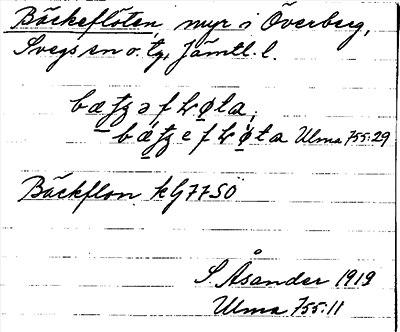 Bäckeflöten, myr i Överberg,
Svegs sn o. tg, Jämtl. l.
Ulma 755:29
Bäckflon kG7750
S. Åsander 1919
Ulma 755:11